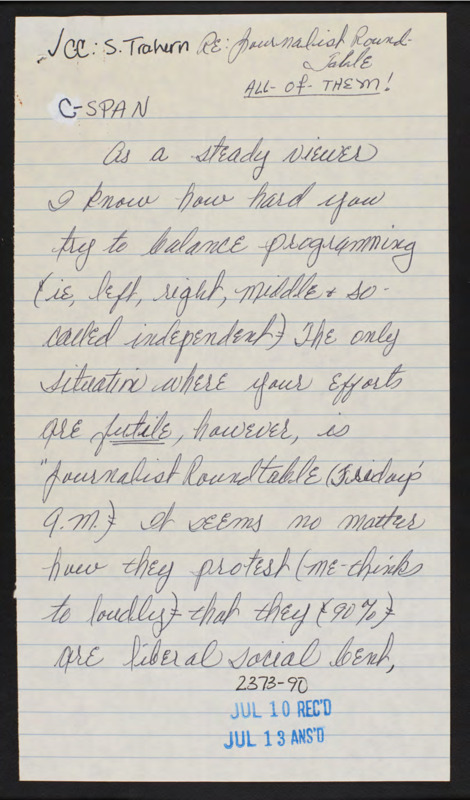 ✓CC: S. Trahern RE: Journalist Round-
Table
ALL- OF- THEM!
C-SPAN
As a steady viewer
I know how hard you
try to balance programming
(ie, left, right, middle + so-
called independent) The only
situation where your efforts
are futile, however, is
"Journalist Roundtable (Friday's
A.M.) It seems no matter
how they protest (me-thinks
to loudly) that they (90%)
are liberal social bent,
2373-90
JUL 10 REC'D
JUL 13 ANS'D